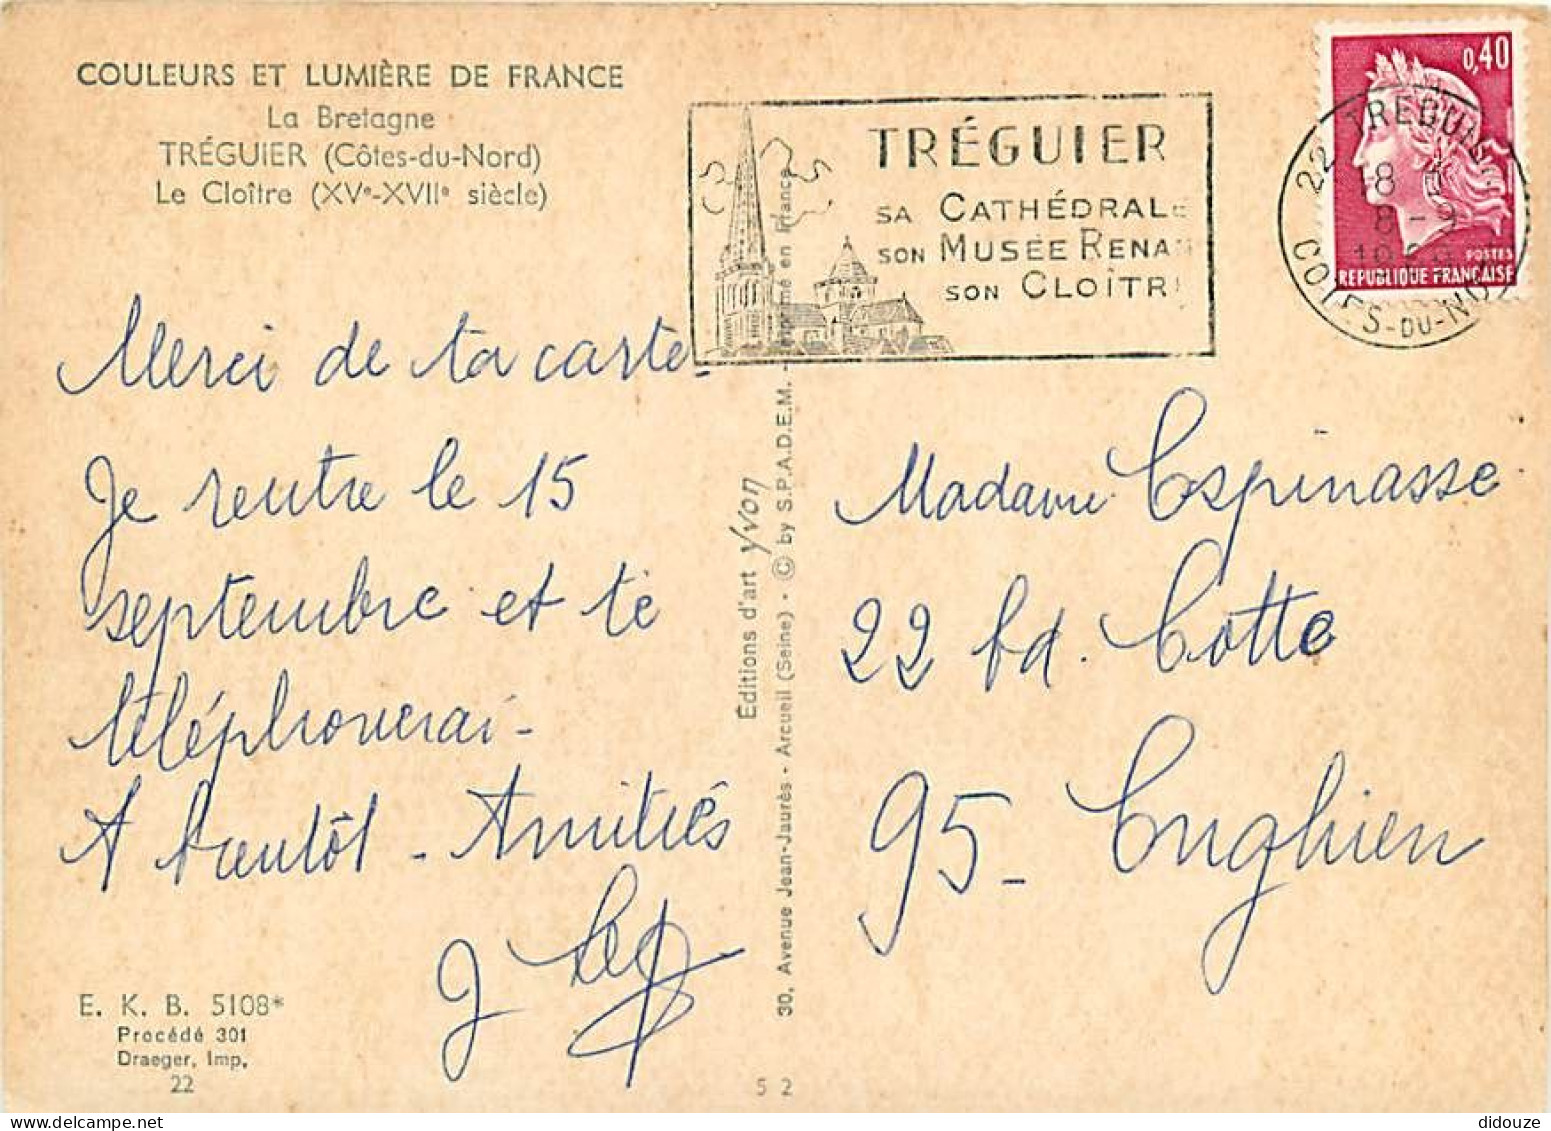 COULEURS ET LUMIÈRE DE FRANCE
La Bretagne
TRÉGUIER (Côtes-du-Nord)
Le Cloître (XVe-XVIIe siècle)
TRÉGUIER
SA CATHÉDRALE
SON MUSÉE RENAN
SON CLOÎTR
0,40
POSTES
REPUBLIQUE FRANÇAISE
22
8 - 9
COTES-DU-NORD
Merci de ta carte.
Je rentre le 15
septembre et te
téléphonerai -
A bientôt - Amitiés
J
Madame Espinasse
22 bd. Cotte
95 - Enghien
Éditions d'art Yvon
30, Avenue Jean-Jaurès - Arcueil (Seine) - © by S.P.A.D.E.M. - Imprimé en France
E. K. B. 5108*
Procédé 301
Draeger, Imp.
22
5 2
didouze